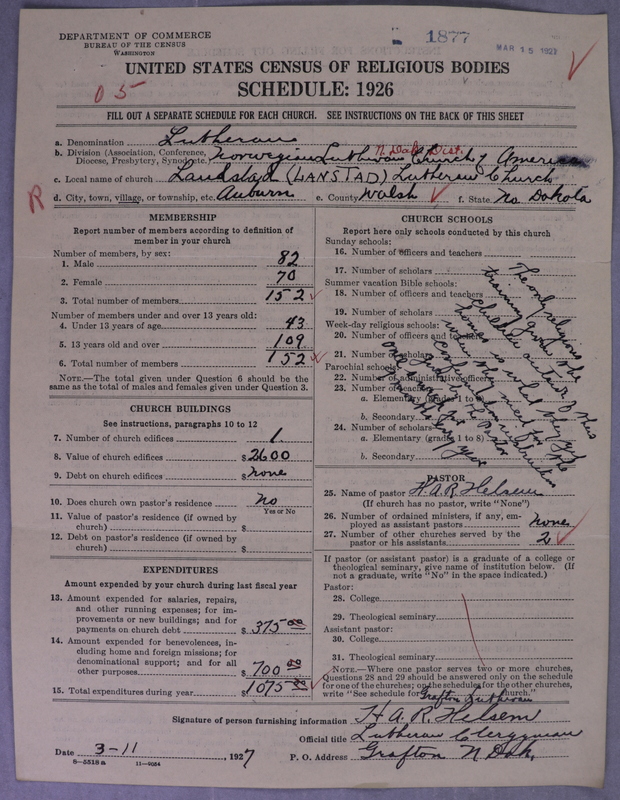 DEPARTMENT OF COMMERCE
BUREAU OF THE CENSUS
WASHINGTON
1877
MAR 15 1927
UNITED STATES CENSUS OF RELIGIOUS BODIES
SCHEDULE: 1926
05
FILL OUT A SEPARATE SCHEDULE FOR EACH CHURCH. SEE INSTRUCTIONS ON THE BACK OF THIS SHEET
a. Denomination Lutheran
N. Dak. Dist.
b. Division (Association, Conference, Diocese, Presbytery, Synod, etc.) Norwegian Lutheran Church of America
c. Local name of church Landstad (LANSTAD) Lutheran Church
R
d. City, town, village, or township, etc. Auburn e. County Walsh f. State No Dakota
MEMBERSHIP
Report number of members according to definition of
member in your church
Number of members, by sex:
1. Male 82
2. Female 70
3. Total number of members 152
Number of members under and over 13 years old:
4. Under 13 years of age 43
5. 13 years old and over 109
6. Total number of members 152
NOTE.—The total given under Question 6 should be the
same as the total of males and females given under Question 3.
CHURCH BUILDINGS
See instructions, paragraphs 10 to 12
7. Number of church edifices 1
8. Value of church edifices $2600
9. Debt on church edifices $none
10. Does church own pastor's residence? no
Yes or No
11. Value of pastor's residence (if owned by
church) $
12. Debt on pastor's residence (if owned by
church) $
EXPENDITURES
Amount expended by your church during last fiscal year
13. Amount expended for salaries, repairs,
and other running expenses; for im-
provements or new buildings; and for
payments on church debt $375 00
14. Amount expended for benevolences, in-
cluding home and foreign missions; for
denominational support; and for all
other purposes $700 00
15. Total expenditures during year $1075 00
CHURCH SCHOOLS
Report here only schools conducted by this church
Sunday schools:
16. Number of officers and teachers
17. Number of scholars
Summer vacation Bible schools:
18. Number of officers and teachers
19. Number of scholars
Week-day religious schools:
20. Number of officers and teachers
21. Number of scholars
Parochial schools:
22. Number of administrative officers
23. Number of teachers
a. Elementary (grades 1 to 8)
b. Secondary
24. Number of scholars
a. Elementary (grades 1 to 8)
b. Secondary
The only religious
training given the
children outside of their
homes is what they get
when they meet for the
PASTOR
25. Name of pastor H.A.R. Helsem
(If church has no pastor, write "None")
26. Number of ordained ministers, if any, em-
ployed as assistant pastors none
27. Number of other churches served by the
pastor or his assistants 2
If pastor (or assistant pastor) is a graduate of a college or
theological seminary, give name of institution below. (If
not a graduate, write "No" in the space indicated.)
Pastor:
28. College
29. Theological seminary
Assistant pastor:
30. College
31. Theological seminary
NOTE.—Where one pastor serves two or more churches,
Questions 28 and 29 should be answered only on the schedule
for one of the churches; on the schedules for the other churches,
write "See schedule for Grafton Lutheran church."
Signature of person furnishing information H. A. R. Helsem
Official title Lutheran Clergyman
Date 3-11, 1927 P. O. Address Grafton N Dak.
8—5518 a 11—9064